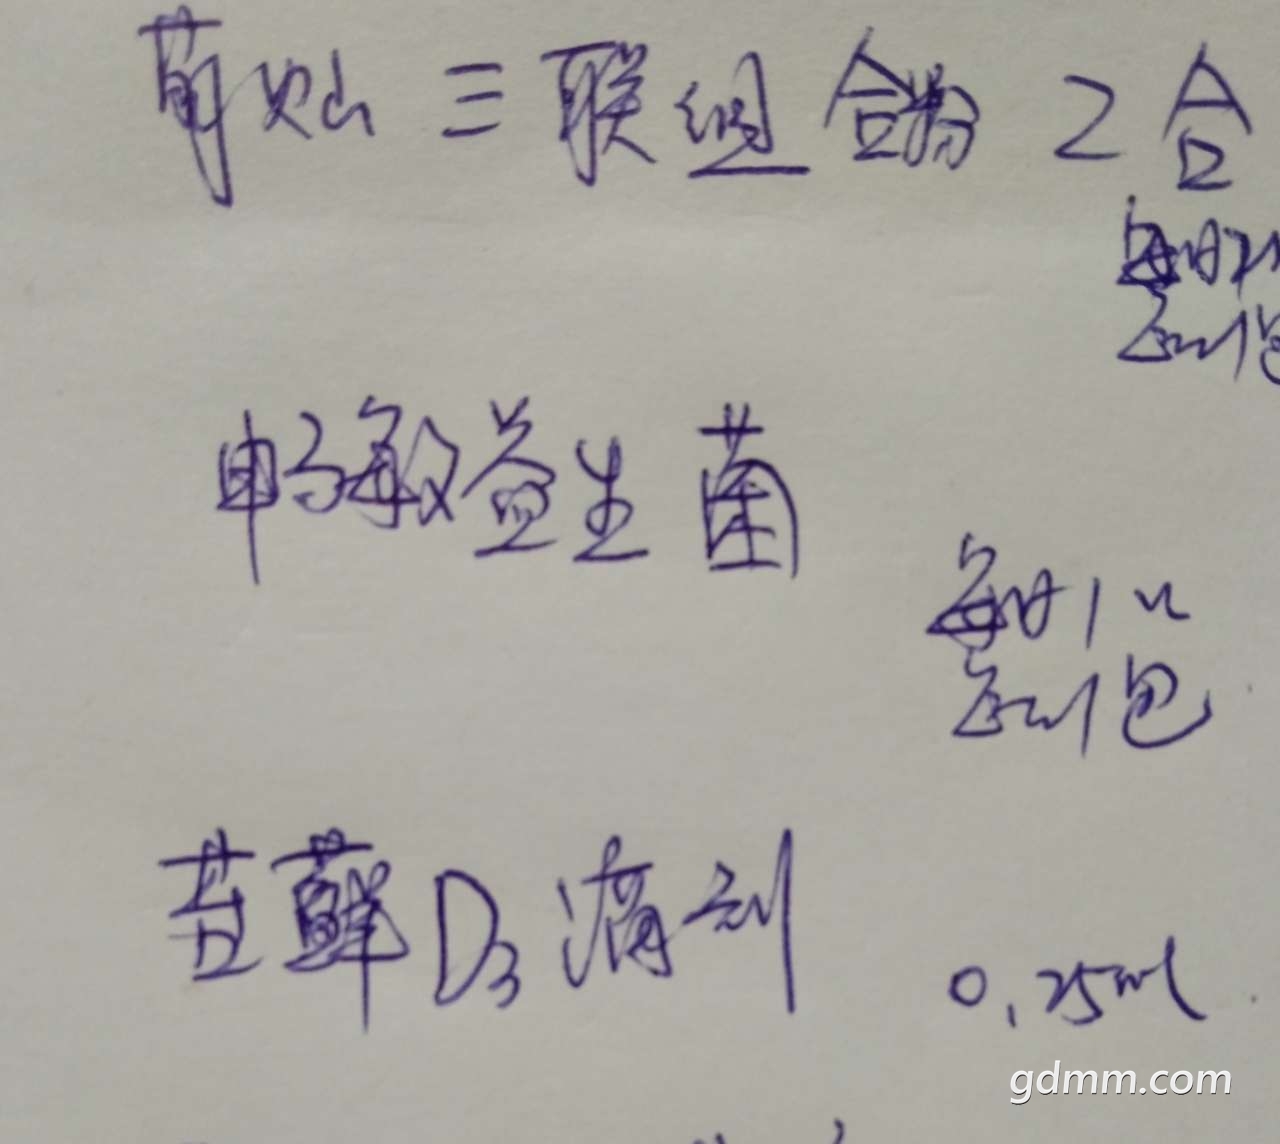 三联组合粉 2合
每日2次
每次1包
畅敏益生菌
每日1次
每次1包
D3滴剂 0.25ml
gdmm.com